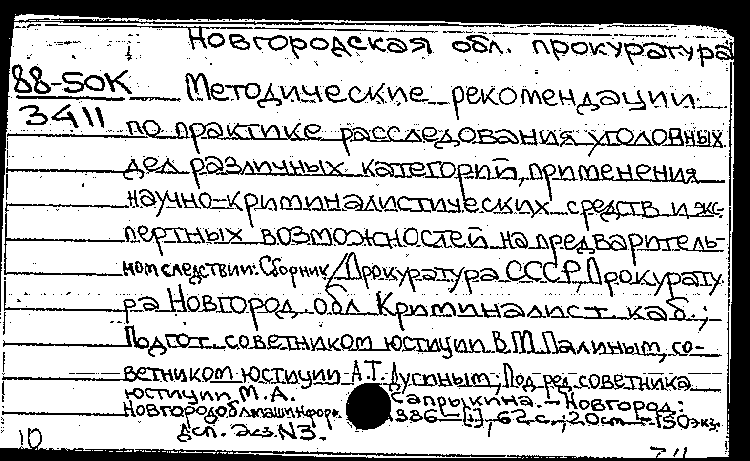 Новгородская обл. прокуратура
88-50К
3411
Методические рекомендации
по практике расследования уголовных
дел различных категорий, применения
научно-криминалистических средств и экс-
пертных возможностей на предваритель-
ном следствии: Сборник/Прокуратура СССР, Прокурату
ра Новгород. обл. Криминалист. каб.;
Подгот. советником юстиции В.М. Палиным, со-
ветником юстиции А.Т. Дусиным; Под ред. советника
юстиции М.А. Сапрыкина. – Новгород:
Новгородоблмашинформ. 1986 – [1], 62 с.; 20 см – 150 экз.
Дсп. Экз. N3.
10